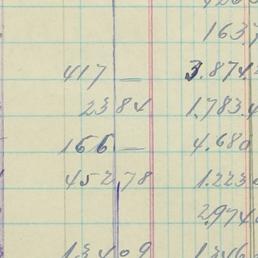 1637
417 — 3.874.
23 84 1.783.4
166 — 4.680
452,78 1.223
2974